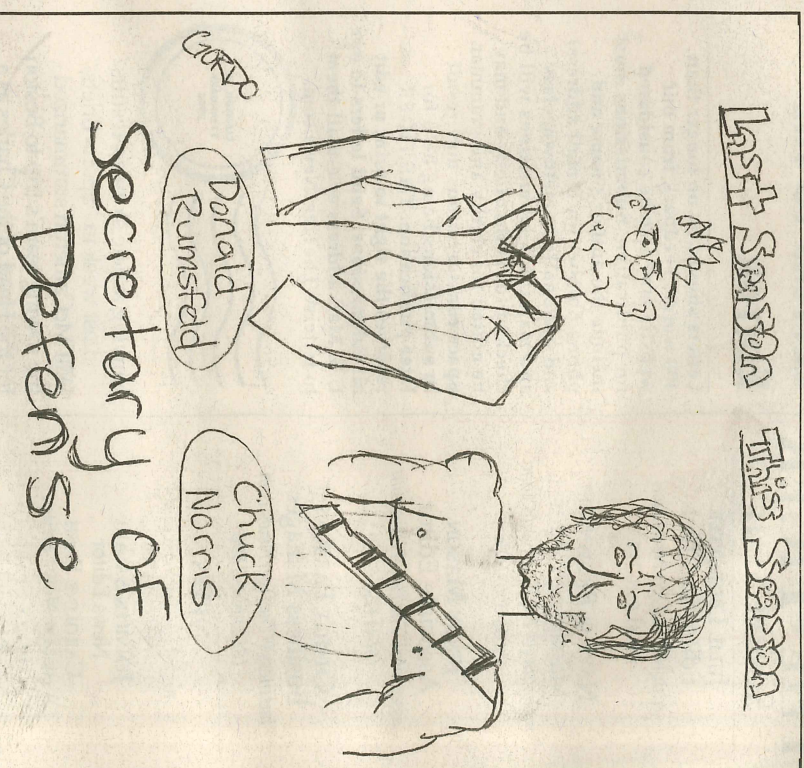 Last Season
This Season
Donald
Rumsfeld
Chuck
Norris
Secretary OF
Defense
GORDO